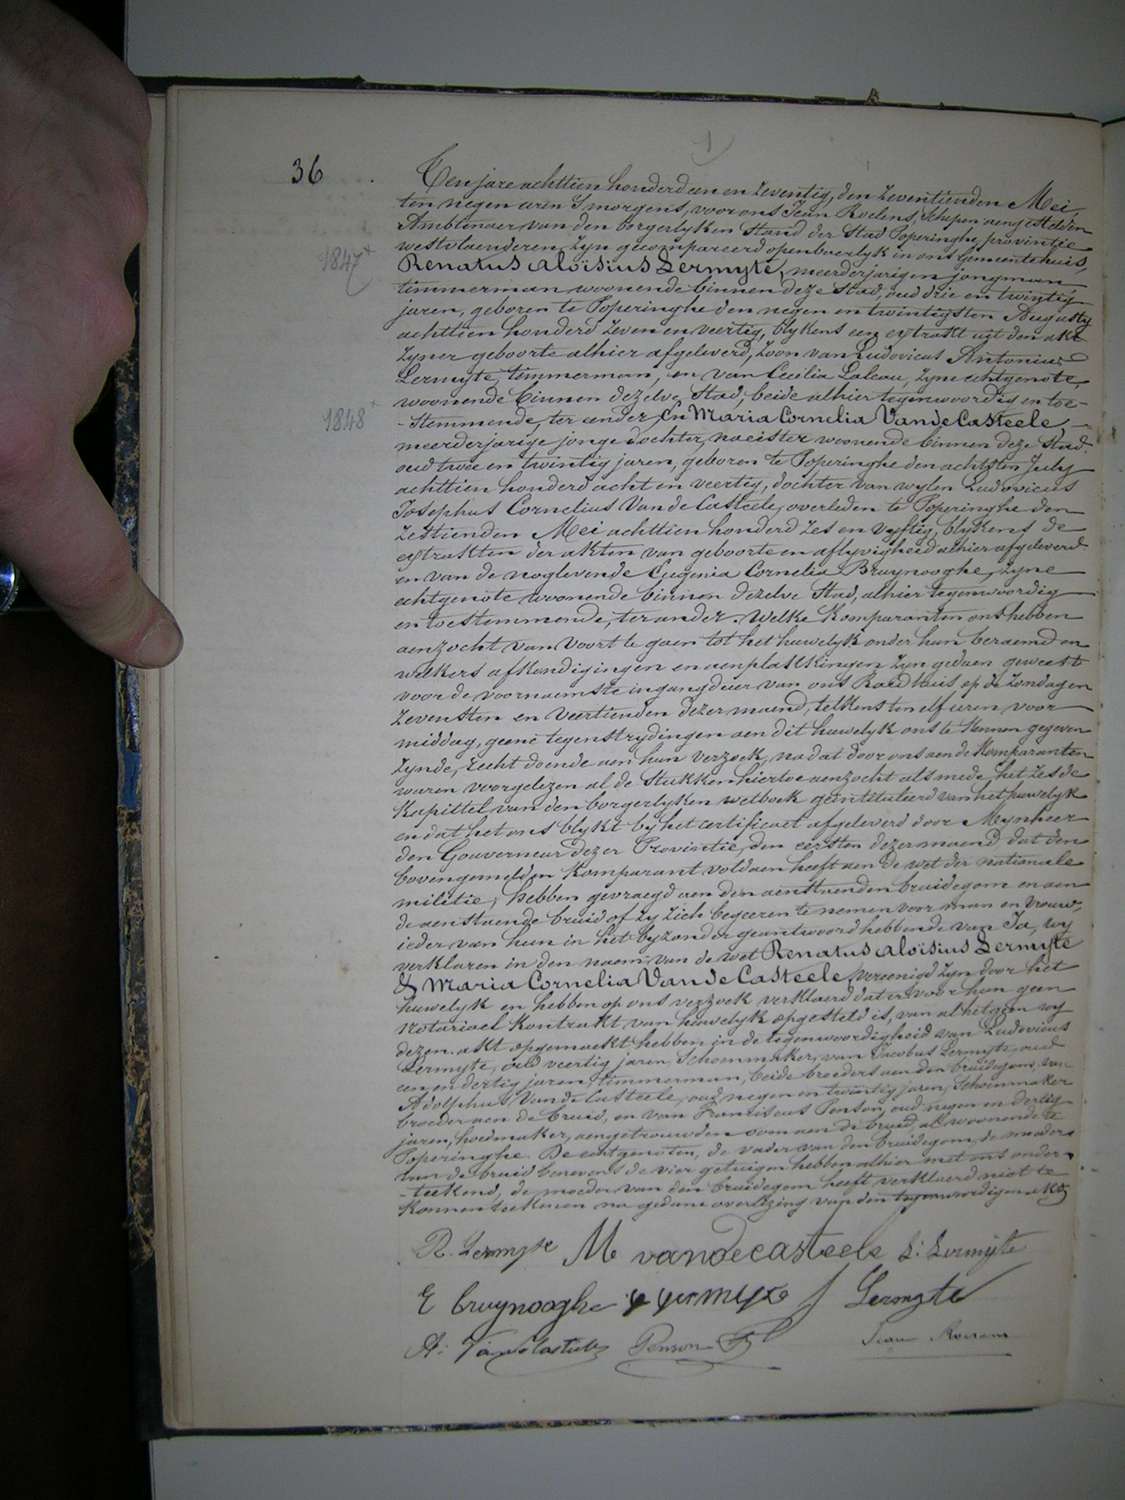 36
Ten jare achttien honderd een en zeventig, den zeventienden Mei
ten negen uren 's morgens, voor ons Jean Roelens, Schepen aengestelden
Ambtenaer van den borgerlyken Stand der Stad Poperinghe, provintie
westvlaenderen, zyn gecompareerd openbaerlyk in ons Gemeentehuis,
1847
Renatus Aloïsius Lermyte, meerderjarigen jongman
timmerman woonende binnen deze Stad, oud drie en twintig
jaren, geboren te Poperinghe den negen en twintigsten Augusty
achttien honderd zeven en veertig, blykens een extrakt uit den akt
zyner geboorte alhier afgeleverd, zoon van Ludovicus Antonius
Lermyte, timmerman, en van Cecilia Laleau, zyne echtgenote,
woonende binnen dezelve Stad, beide alhier tegenwoordig en toe-
1848
-stemmende, ter eender, En Maria Cornelia VandeCasteele,
meerderjarige jonge dochter, naeister woonende binnen deze Stad,
oud twee en twintig jaren, geboren te Poperinghe den achtsten July
achttien honderd acht en veertig, dochter van wylen Ludovicus
Josephus Cornelius Van de Casteele, overleden te Poperinghe den
zestienden Mei achttien honderd zes en vyftig, blykens de
extrakten der akten van geboorte en aflyvigheid alhier afgeleverd
en van de noglevende Eugenia Cornelia Bruynooghe, zyne
echtgenote woonende binnen dezelve Stad, alhier tegenwoordig
en toestemmende, ter ander. Welke Komparanten ons hebben
aenzocht van voort te gaen tot het huwelyk onder hun beraemd en
welkers afkondigingen en aenplakkingen zyn gedaen geweest
voor de voornaemste ingangdeur van ons Raedhuis op de zondagen
zevensten en veertienden dezer maend, telkens ten elf uren voor
middag, geene tegenstrydingen aen dit huwelyk ons te kennen gegeven
zynde, recht doende aen hun verzoek, na dat door ons aen de Komparanten
waren voorgelezen al de Stukken hiertoe aenzocht als mede het zesde
Kapittel van den borgerlyken wetboek geintituleerd van het huwelyk
en dat het ons blykt by het certificaet afgeleverd door Mynheer
den Gouverneur dezer Provintie, den eersten dezer maend dat den
bovengemelden Komparant voldaen heeft aen de wet der nationale
militie, hebben gevraegd aen den aenstaenden bruidegom en aen
de aenstaende bruid of zy zich begeeren te nemen voor man en vrouw,
ieder van hun in het byzonder geantwoord hebbende van Ja, wy
verklaren in den naem van de wet Renatus Aloïsius Lermyte
& Maria Cornelia VandeCasteele vereenigd zyn door het
huwelyk en hebben op ons verzoek verklaerd dat er voor hun geen
notariael Kontrakt van huwelyk opgesteld is, van al hetgeen wy
dezen akt opgemaekt hebben in de tegenwoordigheid van Ludovicus
Lermyte, oud veertig jaren, Schoenmaker, van Jacobus Lermyte, oud
een en dertig jaren, timmerman, beide broeders aen den bruidegom, van
Adolphus Van de Casteele, oud negen en twintig jaren, Schoenmaker
broeder aen de bruid, en van Franciscus Penson, oud negen en dertig
jaren, hoedmaker, aengetrouwden oom aen de bruid, al woonende te
Poperinghe. De echtgenoten, de vader van den bruidegom, de moeder
van de bruid benevens de vier getuigen hebben alhier met ons onder-
-teekend, de moeder van den bruidegom heeft verklaerd niet te
konnen teekenen na gedane overlezing van den tegenwoordigen akt
R. Lermyte M vandecasteele L: Lermyte
E bruynooghe Lermyte J Lermyte
A: Vandecasteele Penson Jean Roelens